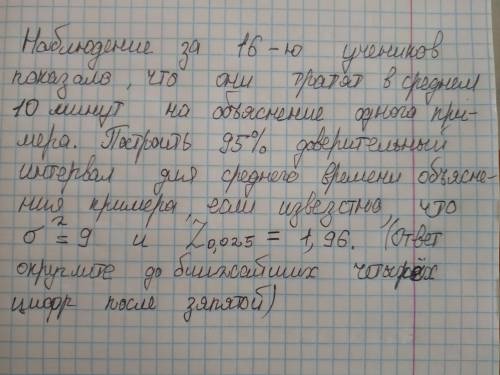 Наблюдение за 16-ю учеников
показало, что они тратят в среднем
10 минут на объяснение одного при-
мера. Построить 95% доверительный
интервал для среднего времени объясне-
ния примера, если известно, что
σ² = 9 и Z₀,₀₂₅ = 1,96. (Ответ
округлите до ближайших четырёх
цифр после запятой)